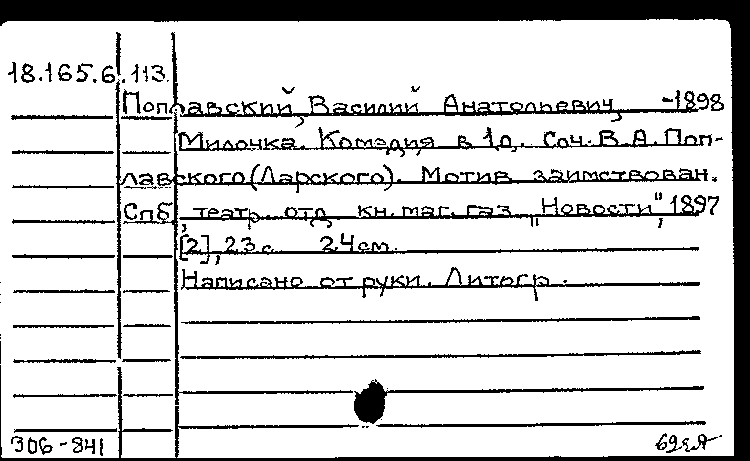 18.165.6.113.
Поплавский, Василий Анатольевич, -1898
Милочка. Комедия в 1д. Соч. В.А. Поп-
лавского (Ларского). Мотив заимствован.
Спб, театр. отд. кн. маг. газ. „Новости", 1897
[2], 23 с. 24 см.
Написано от руки. Литогр.
306-841